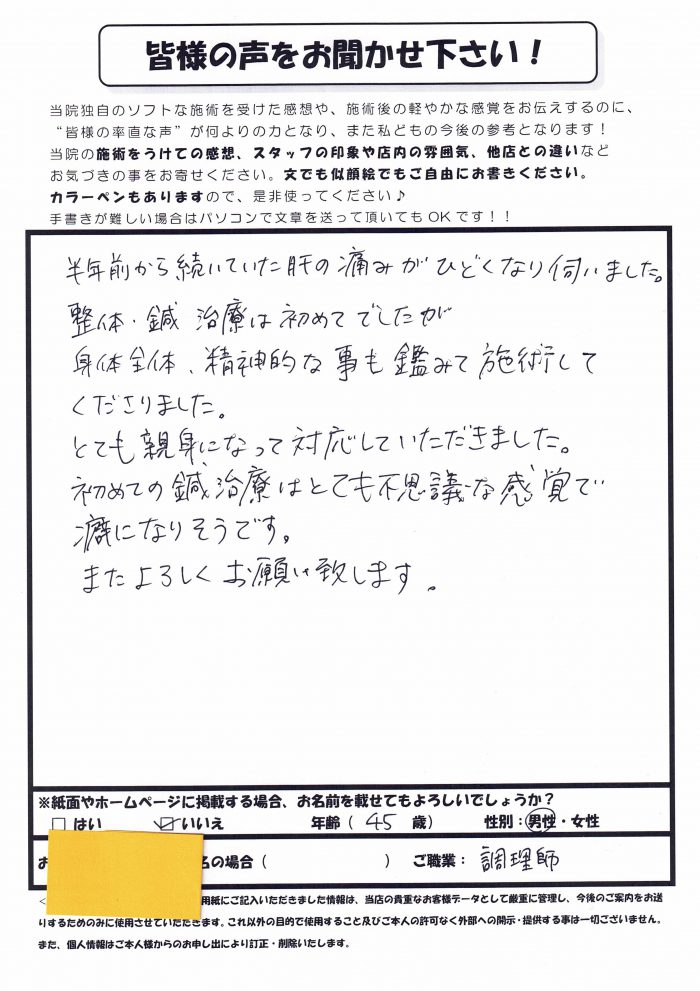 皆様の声をお聞かせ下さい！
当院独自のソフトな施術を受けた感想や、施術後の軽やかな感覚をお伝えするのに、
“皆様の率直な声”が何よりの力となり、また私どもの今後の参考となります！
当院の施術をうけての感想、スタッフの印象や店内の雰囲気、他店との違いなど
お気づきの事をお寄せください。文でも似顔絵でもご自由にお書きください。
カラーペンもありますので、是非使ってください♪
手書きが難しい場合はパソコンで文章を送って頂いてもOKです！！
半年前から続いていた肝の痛みがひどくなり伺いました。
整体・鍼治療は初めてでしたが
身体全体、精神的な事も鑑みて施術して
くださりました。
とても親身になって対応していただきました。
初めての鍼治療はとても不思議な感覚で
癖になりそうです。
またよろしくお願い致します。
※紙面やホームページに掲載する場合、お名前を載せてもよろしいでしょうか？
□ はい ☑ いいえ 年齢（ 45 歳） 性別：男性・女性
お 名の場合（ ） ご職業： 調理師
用紙にご記入いただきました情報は、当店の貴重なお客様データとして厳重に管理し、今後のご案内をお送
りするためのみに使用させていただきます。これ以外の目的で使用すること及びご本人の許可なく外部への開示・提供する事は一切ございません。
また、個人情報はご本人様からのお申し出により訂正・削除いたします。